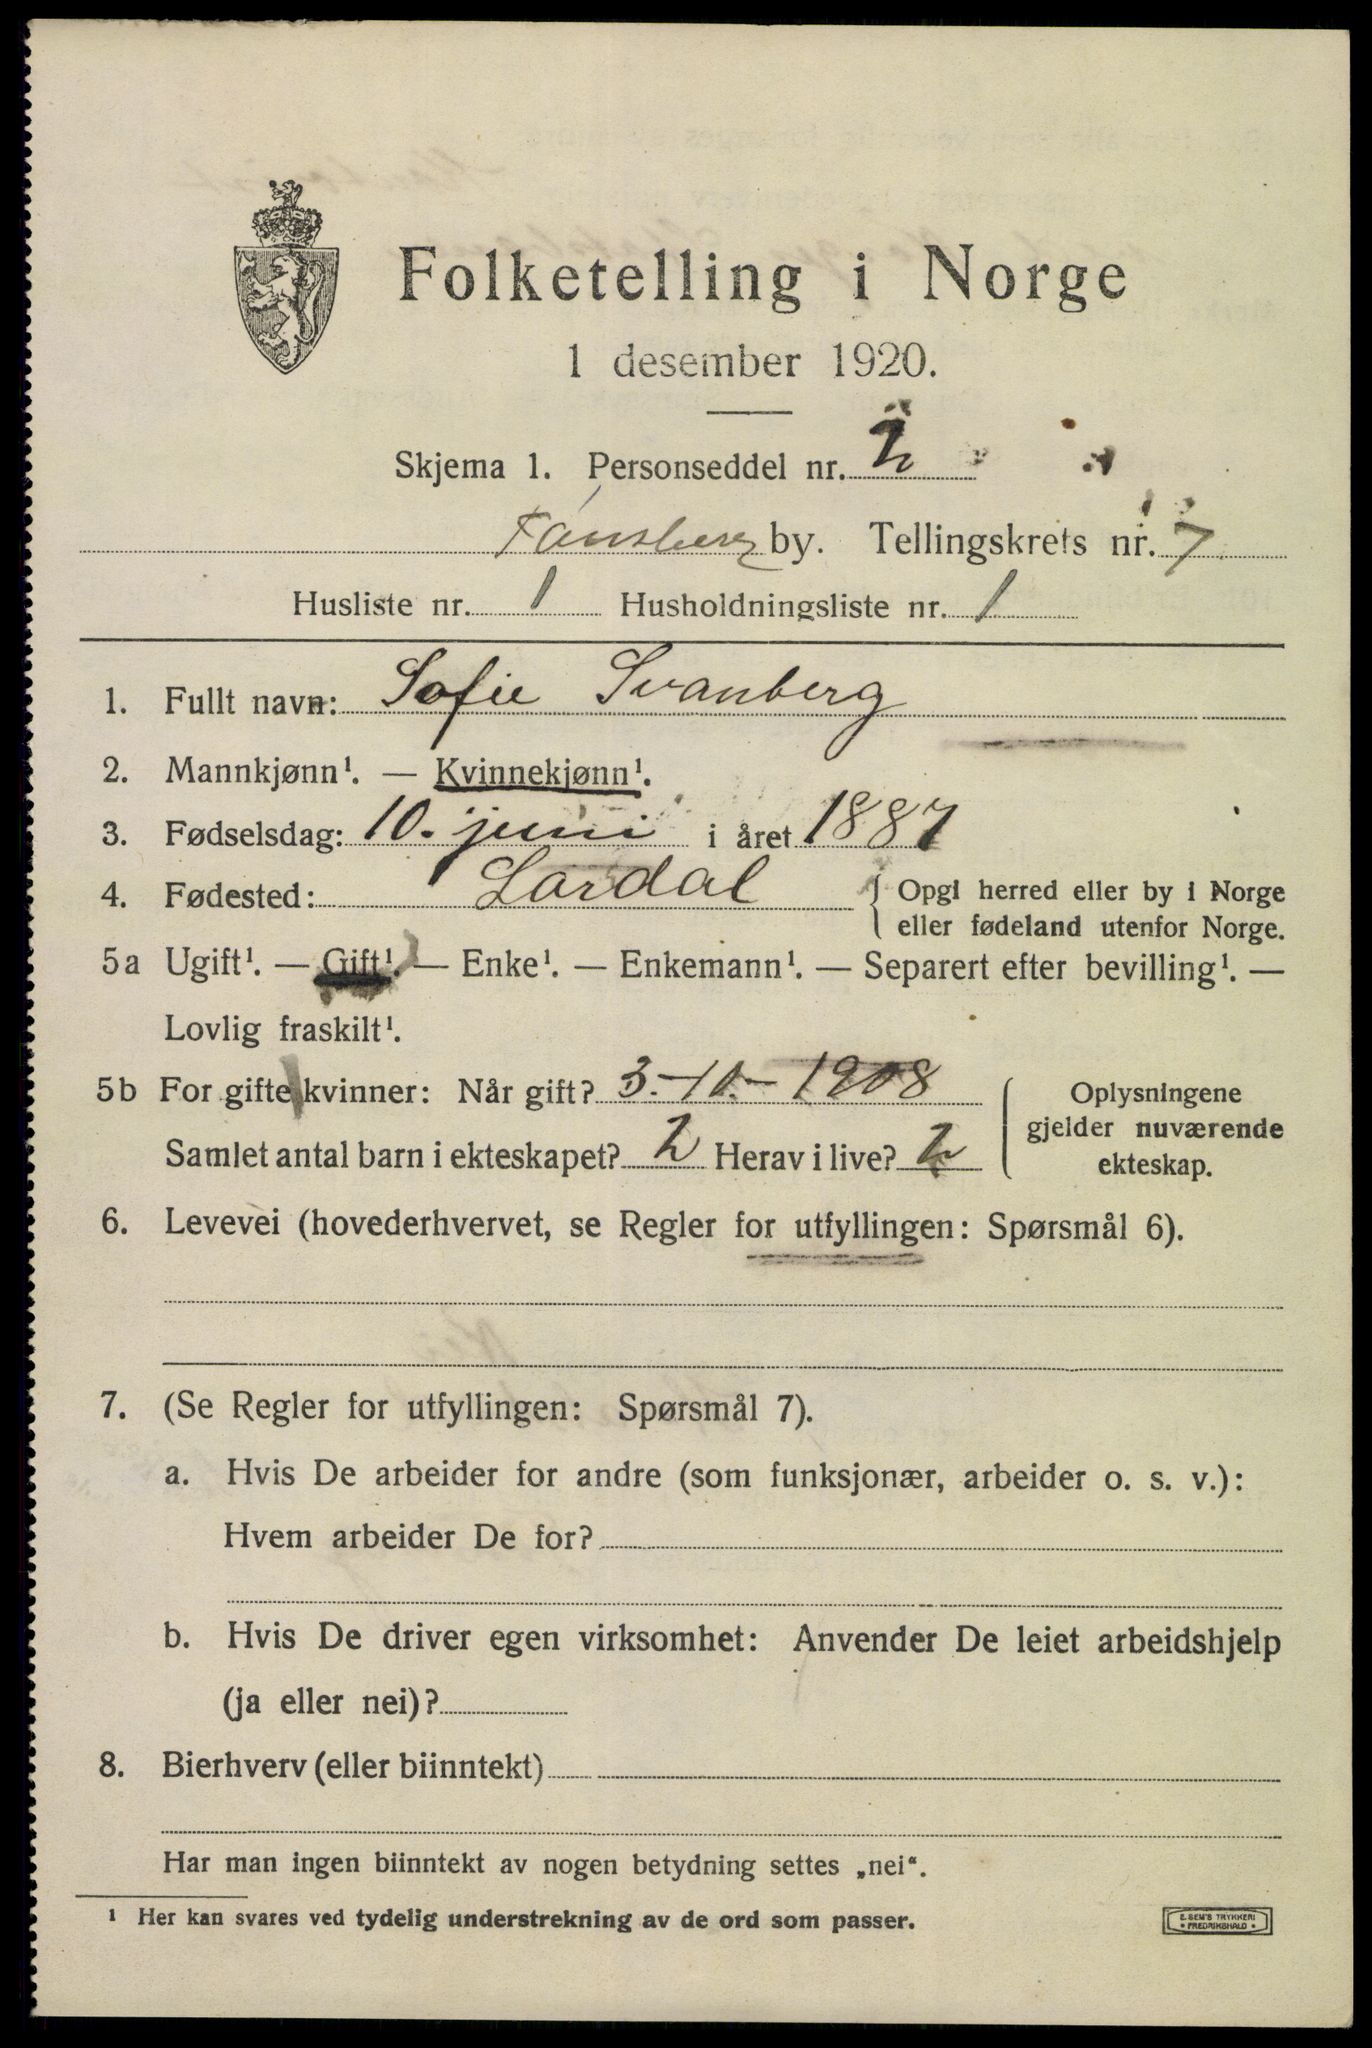 Folketelling i Norge
1 desember 1920.
Skjema 1. Personseddel nr. 2
Tønsberg by. Tellingskrets nr. 7
Husliste nr. 1 Husholdningsliste nr. 1
1. Fullt navn: Sofie Svanberg
2. Mannkjønn¹. — Kvinnekjønn¹.
3. Fødselsdag: 10. juni i året 1887
4. Fødested: Lardal { Opgi herred eller by i Norge
eller fødeland utenfor Norge.
5a Ugift¹. — Gift¹. — Enke¹. — Enkemann¹. — Separert efter bevilling¹. —
Lovlig fraskilt¹.
5b For gifte kvinner: Når gift? 3.-10.-1908 { Oplysningene
gjelder nuværende
ekteskap.
Samlet antal barn i ekteskapet? 2 Herav i live? 2
6. Levevei (hovederhvervet, se Regler for utfyllingen: Spørsmål 6).
7. (Se Regler for utfyllingen: Spørsmål 7).
a. Hvis De arbeider for andre (som funksjonær, arbeider o. s. v.):
Hvem arbeider De for?
b. Hvis De driver egen virksomhet: Anvender De leiet arbeidshjelp
(ja eller nei)?
8. Bierhverv (eller biinntekt)
Har man ingen biinntekt av nogen betydning settes „nei“.
¹ Her kan svares ved tydelig understrekning av de ord som passer.
E. SEM'S TRYKKERI
• FREDRIKSHALD •